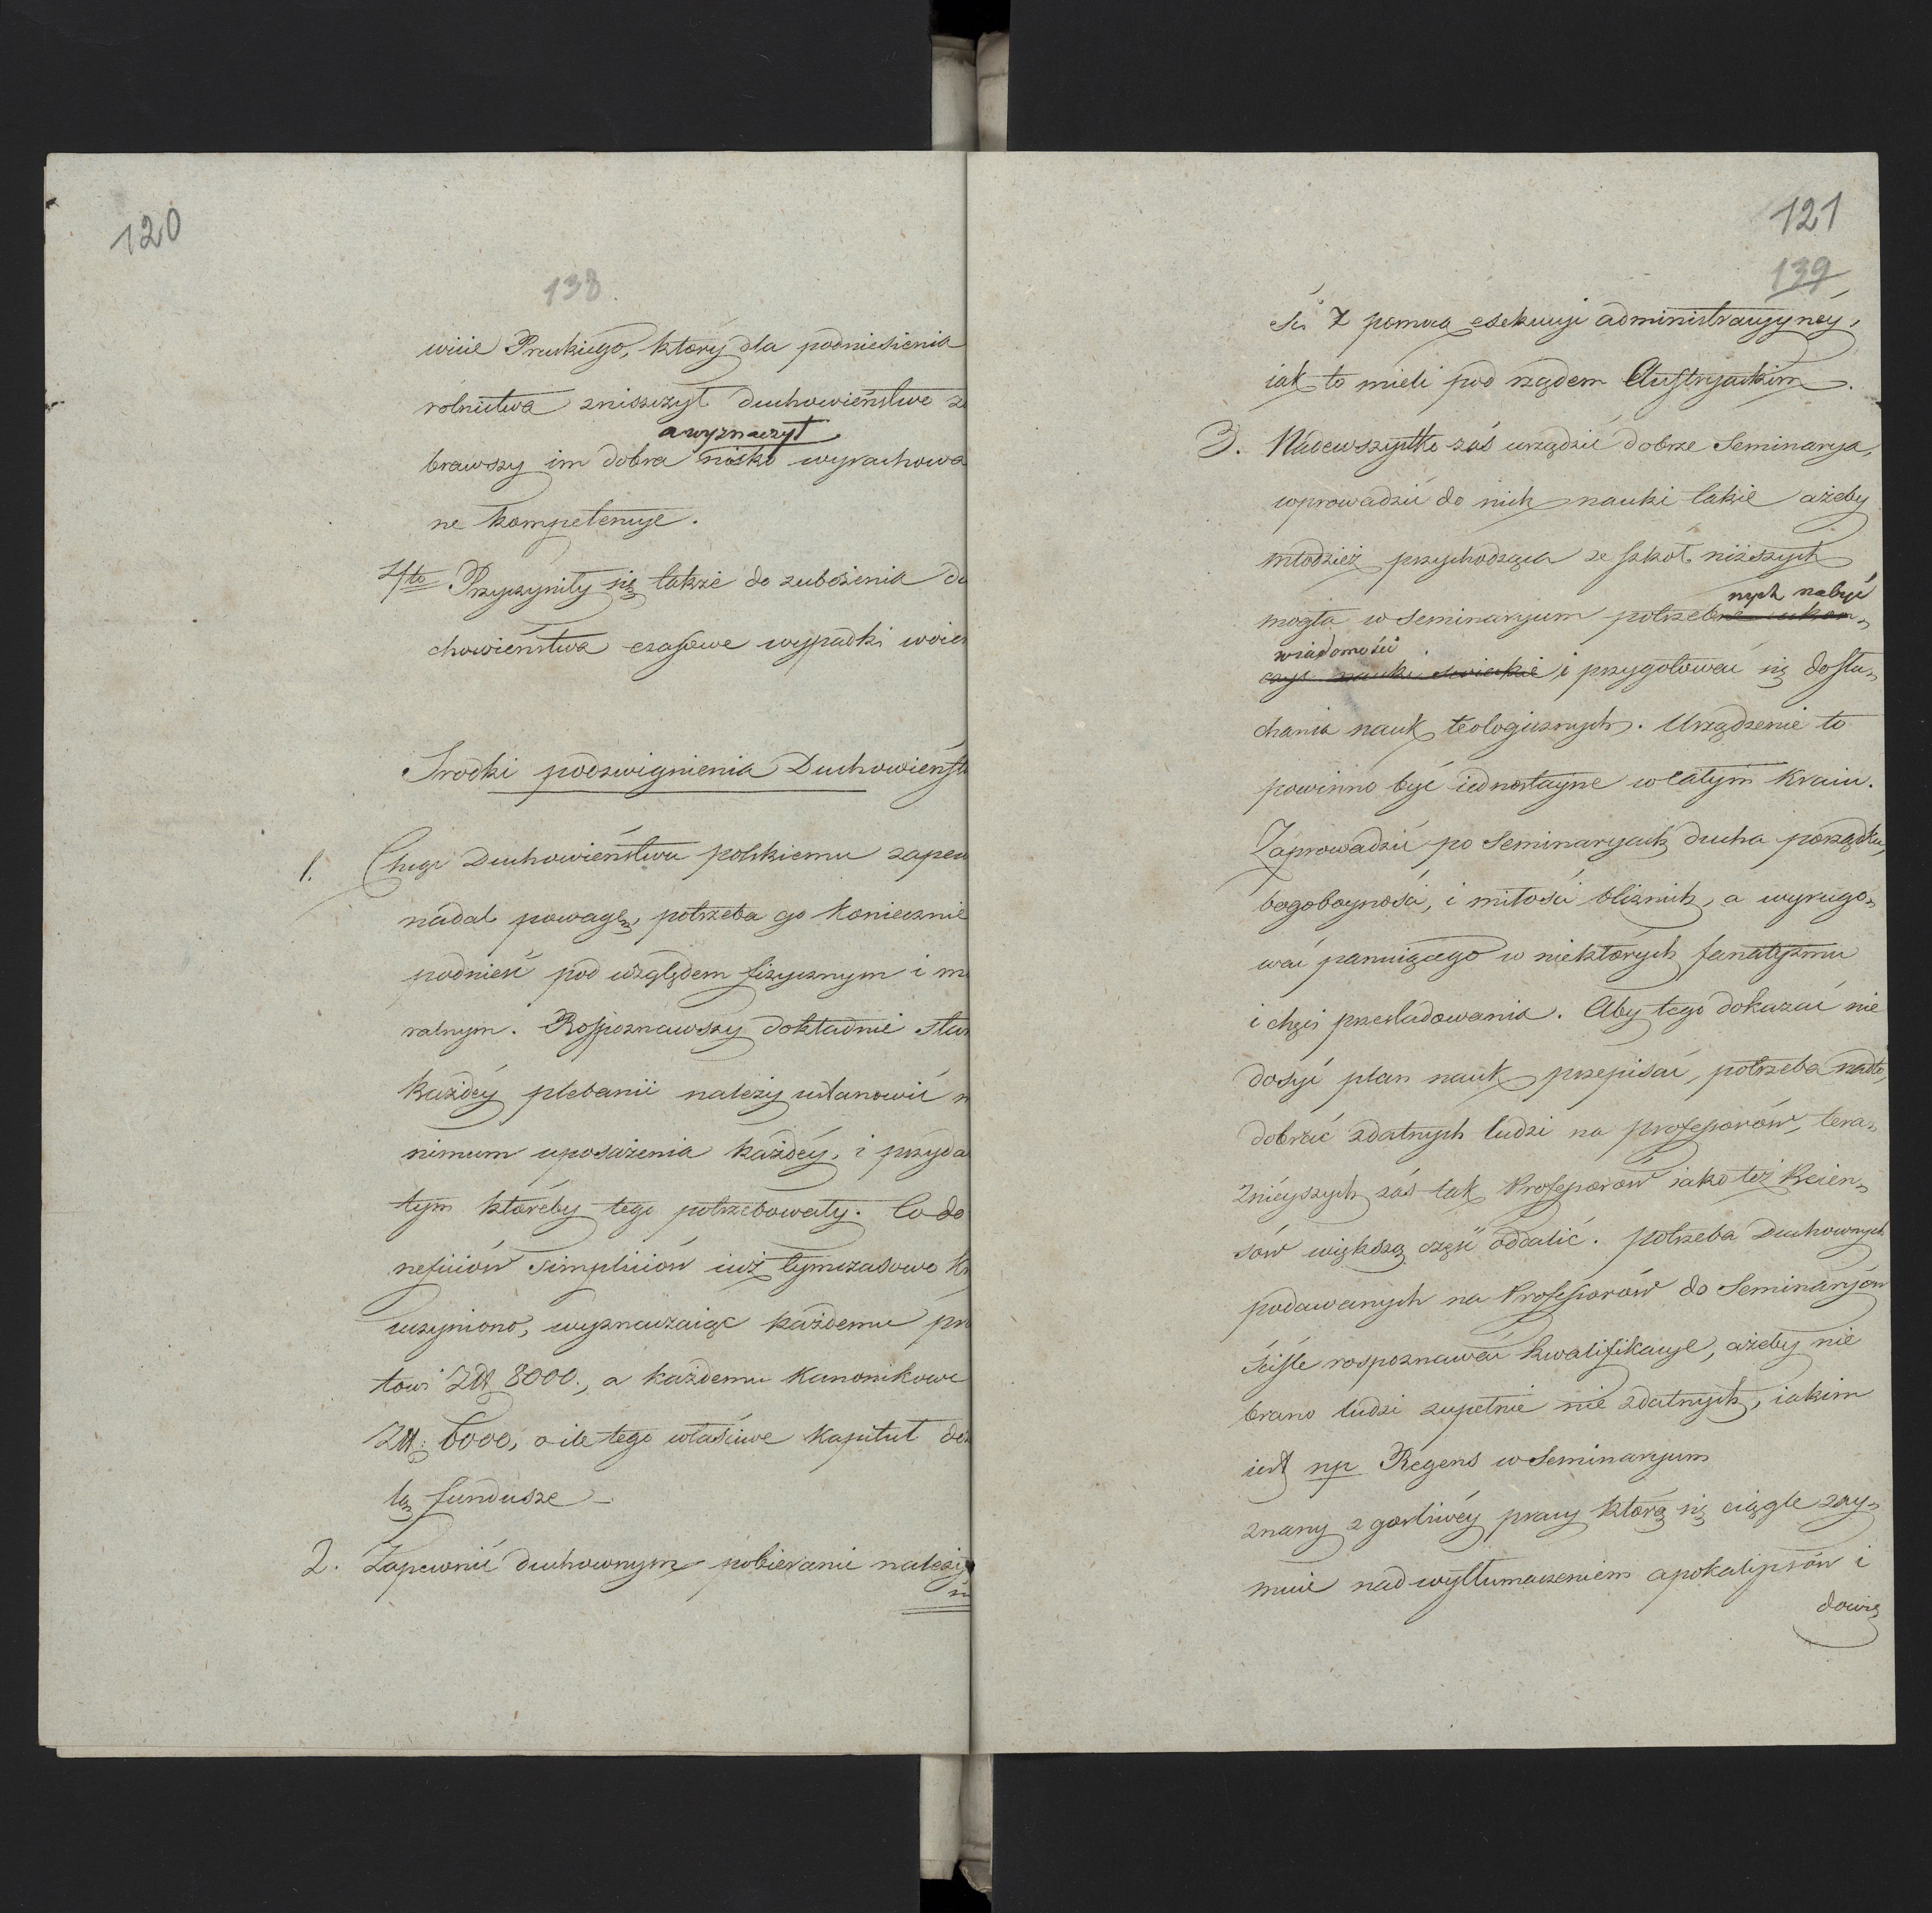 120
138.
wiie Pruskiego, który dla podniesienia
rolnictwa zniszczył duchowieństwo za
a wyznaczył
brawszy im dobra nisko wyrachowa
ne kompetencye.
4to Przyczyniły się także do zubożenia du
chowieństwa czasowe wypadki woien
Srodki podzwignienia Duchowieńst
1. Chcąc Duchowieństwu polskiemu zapew
nadal powagę, potrzeba go koniecznie
podnieść pod względem fizycznym i mo
ralnym. Rospoznawszy dokładnie stan
każdéy plebanii należy ustanowić m
nimum uposażenia każdéy, i przyda
tym któreby tego potrzebowały. Co do
neficiów simpliciów iuż tymczasowo
uczyniono, wyznaczaiąc każdemu pra
towi Złt 8000., a każdemu Kanonikowi
Złt: 6000, o ile tego właściwe kapituł do
łą fundusze –
2. Zapewnić duchownym pobieranie należy
121
139
ści z pomocą exekucyi administracyynéy,
iak to mieli pod rządem Austryackim.
3. Nadewszystko zaś urządzić dobrze Seminarya,
wprowadzić do nich nauki takie ażeby
młodzież przychodząca ze szkół niższych
nych nabyć
mogła w Seminaryum potrzebne ukoń„
wiadomości
czyć nauki świeckie i przygotować się do słu„
chania nauk teologicznych. Urządzenie to
powinno być iednostayne w całym Kraiu.
Zaprowadzić po Seminaryach ducha porządku,
bogoboyności, i miłości bliznich, a wyrugo„
wać panuiącego w niektórych fanatyzmu
i chęci prześladowania. Aby tego dokazać nie
dosyć plan nauk przepisać, potrzeba nadto,
dobrać zdatnych ludzi na professorów, tera„
źnieyszych zaś tak Professorów iako też Rejen„
sów większą część oddalić. potrzeba Duchownych
podawanych na Professorów do Seminaryów
ściśle rospoznawać kwalifikacye, ażeby nie
brano ludzi zupełnie nie zdatnych, iakim
iest np Regens w Seminaryum
znany z gorliwéy pracy którą się ciągle zay„
muie nad wytłumaczeniem apokalipsów i
dowie